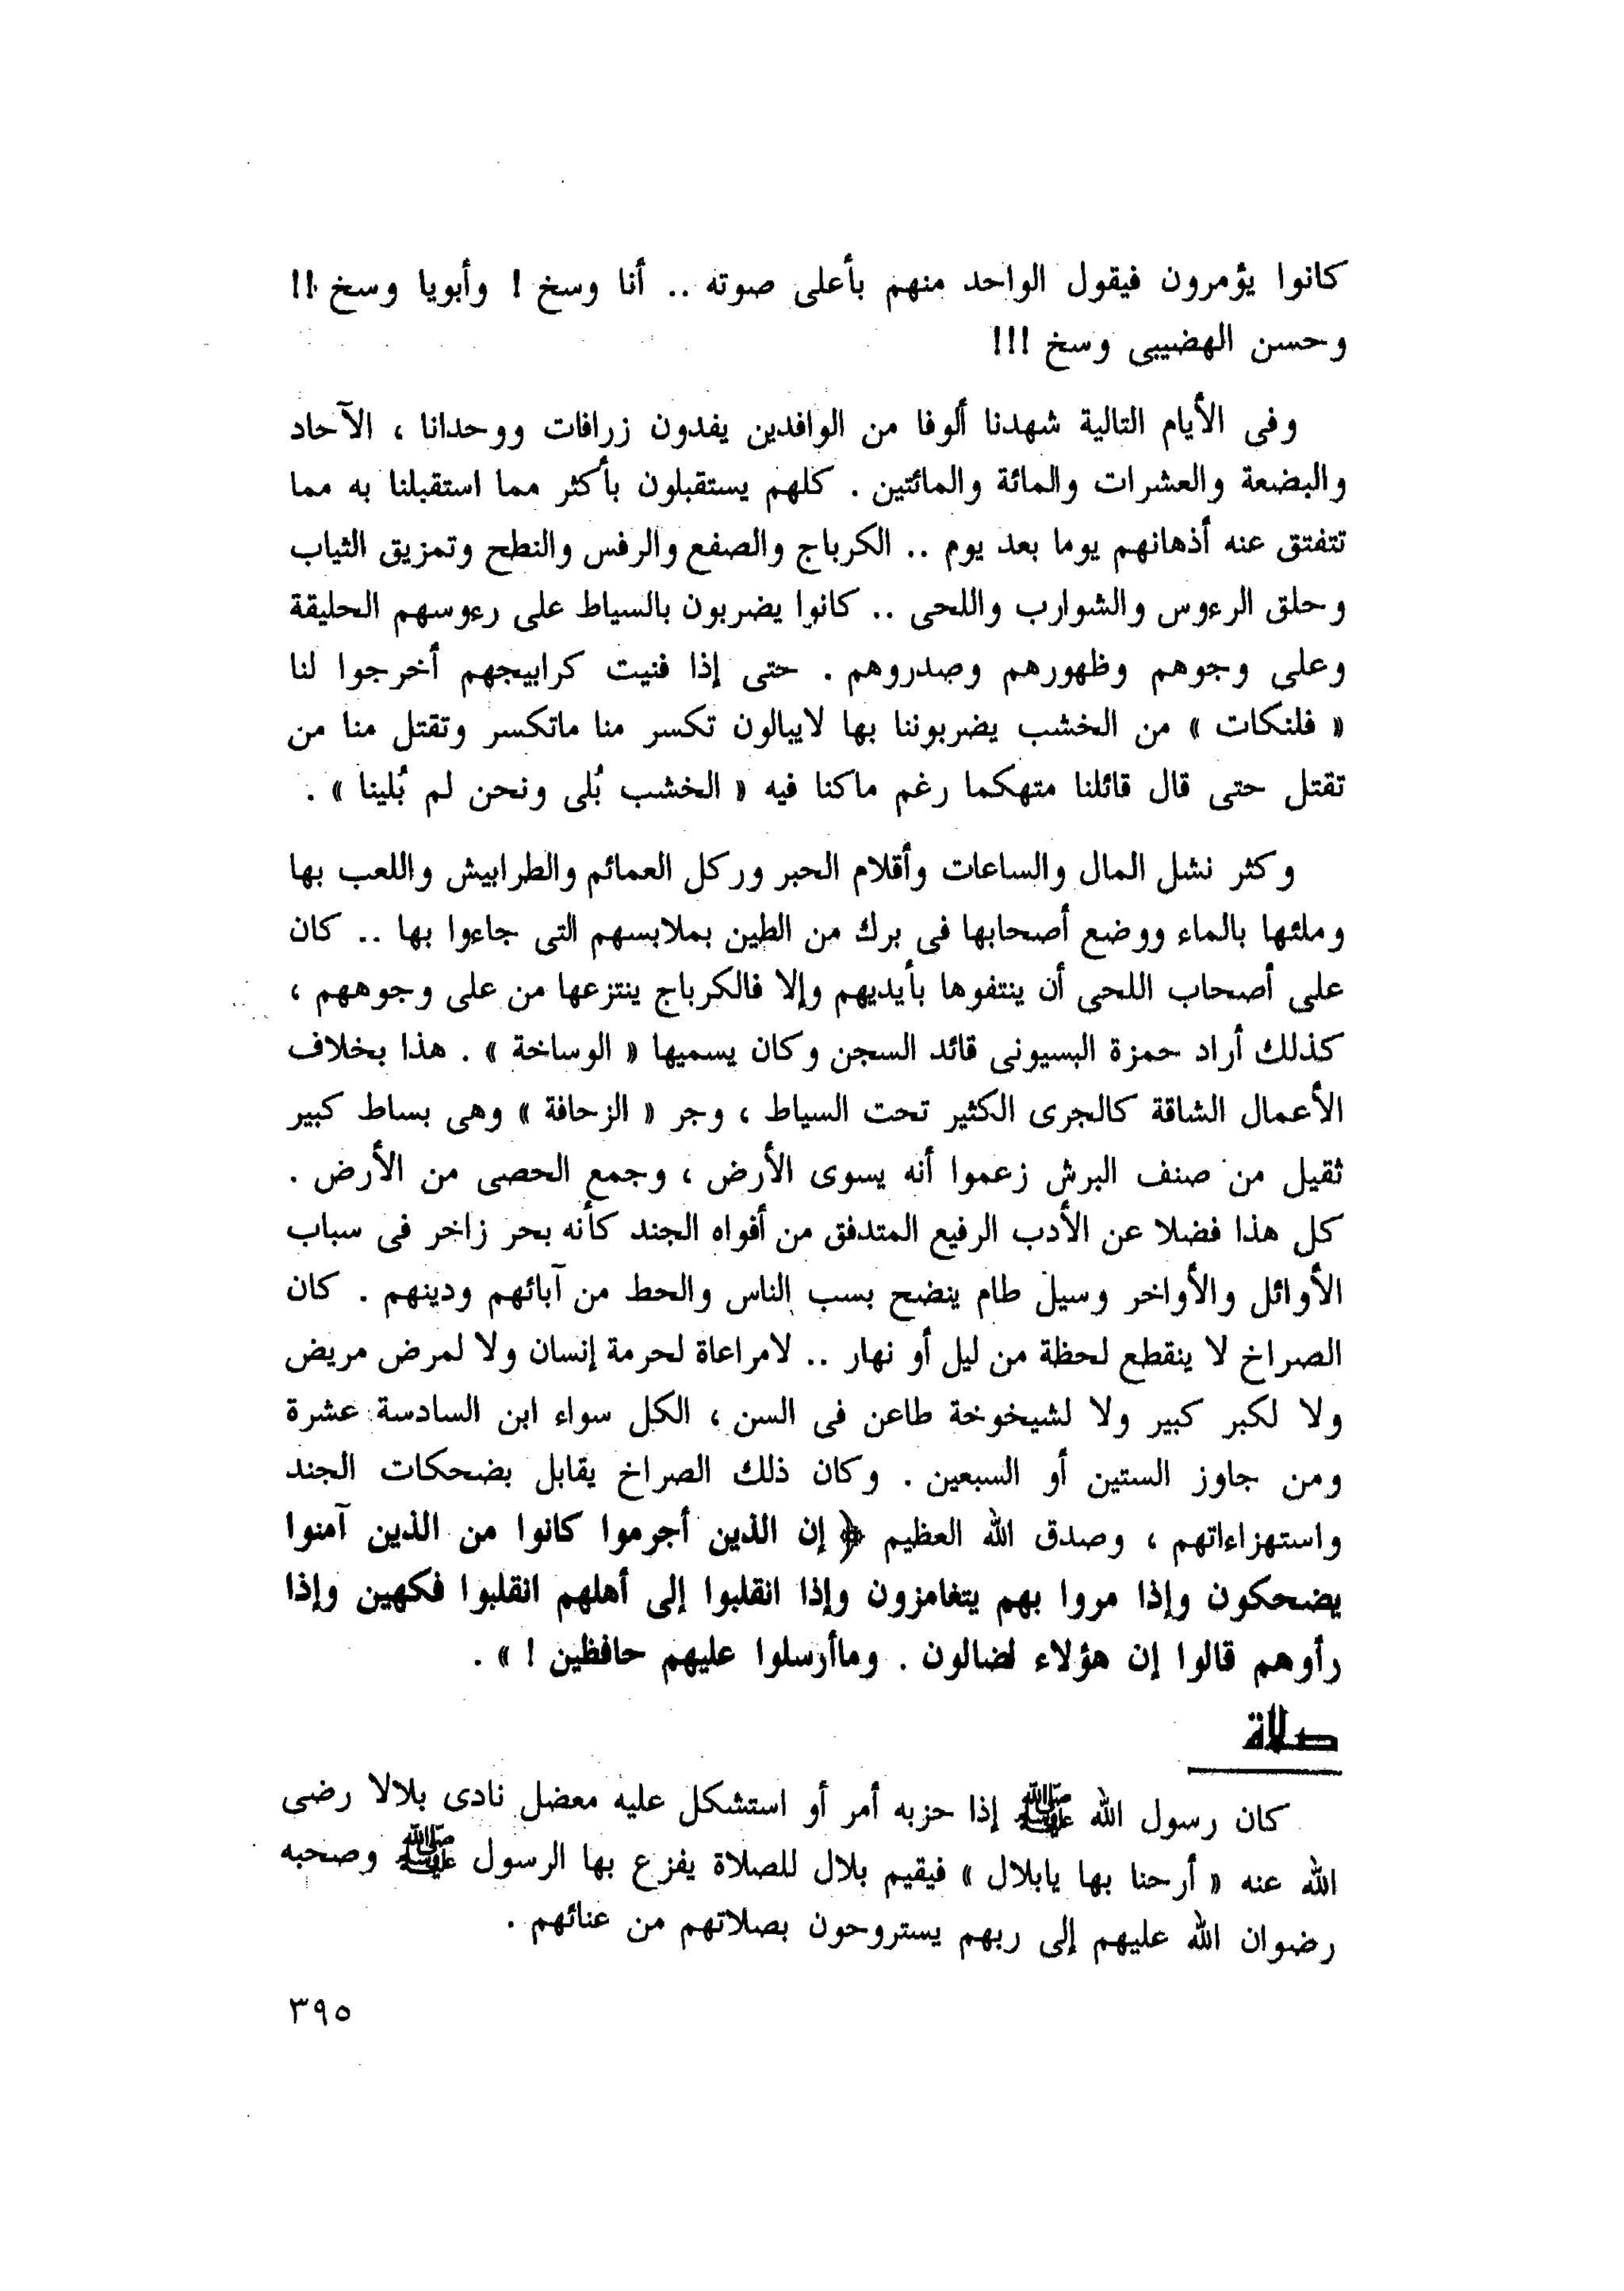 كانوا يؤمرون فيقول الواحد منهم بأعلى صوته .. أنا وسخ ! وأبويا وسخ !!
وحسن الهضيبى وسخ !!!
وفى الأيام التالية شهدنا ألوفا من الوافدين يفدون زرافات ووحدانا ، الآحاد
والبضعة والعشرات والمائة والمائتين . كلهم يستقبلون بأكثر مما استقبلنا به مما
تتفتق عنه أذهانهم يوما بعد يوم .. الكرباج والصفع والرفس والنطح وتمزيق الثياب
وحلق الرءوس والشوارب واللحى .. كانوا يضربون بالسياط على رءوسهم الحليقة
وعلى وجوهم وظهورهم وصدروهم . حتى إذا فنيت كرابيجهم أخرجوا لنا
« فلنكات » من الخشب يضربوننا بها لايبالون تكسر منا ماتكسر وتقتل منا من
تقتل حتى قال قائلنا متهكما رغم ماكنا فيه « الخشب بُلى ونحن لم بُلينا » .
وكثر نشل المال والساعات وأقلام الحبر وركل العمائم والطرابيش واللعب بها
وملئها بالماء ووضع أصحابها فى برك من الطين بملابسهم التى جاءوا بها .. كان
على أصحاب اللحى أن ينتفوها بأيديهم وإلا فالكرباج ينتزعها من على وجوههم ،
كذلك أراد حمزة البسيونى قائد السجن وكان يسميها « الوساخة » . هذا بخلاف
الأعمال الشاقة كالجرى الكثير تحت السياط ، وجر « الزحافة » وهى بساط كبير
ثقيل من صنف البرش زعموا أنه يسوى الأرض ، وجمع الحصى من الأرض .
كل هذا فضلا عن الأدب الرفيع المتدفق من أفواه الجند كأنه بحر زاخر فى سباب
الأوائل والأواخر وسيل طام ينضح بسب الناس والحط من آبائهم ودينهم . كان
الصراخ لا ينقطع لحظة من ليل أو نهار .. لامراعاة لحرمة إنسان ولا لمرض مريض
ولا لكبر كبير ولا لشيخوخة طاعن فى السن ، الكل سواء ابن السادسة عشرة
ومن جاوز الستين أو السبعين . وكان ذلك الصراخ يقابل بضحكات الجند
واستهزاءاتهم ، وصدق الله العظيم ﴿ إن الذين أجرموا كانوا من الذين آمنوا
يضحكون وإذا مروا بهم يتغامزون وإذا انقلبوا إلى أهلهم انقلبوا فكهين وإذا
رأوهم قالوا إن هؤلاء لضالون . وماأرسلوا عليهم حافظين ! » .
صلاة
كان رسول الله ﷺ إذا حزبه أمر أو استشكل عليه معضل نادى بلالا رضى
الله عنه « أرحنا بها يابلال » فيقيم بلال للصلاة يفزع بها الرسول ﷺ وصحبه
رضوان الله عليهم إلى ربهم يستروحون بصلاتهم من عنائهم .
٣٩٥